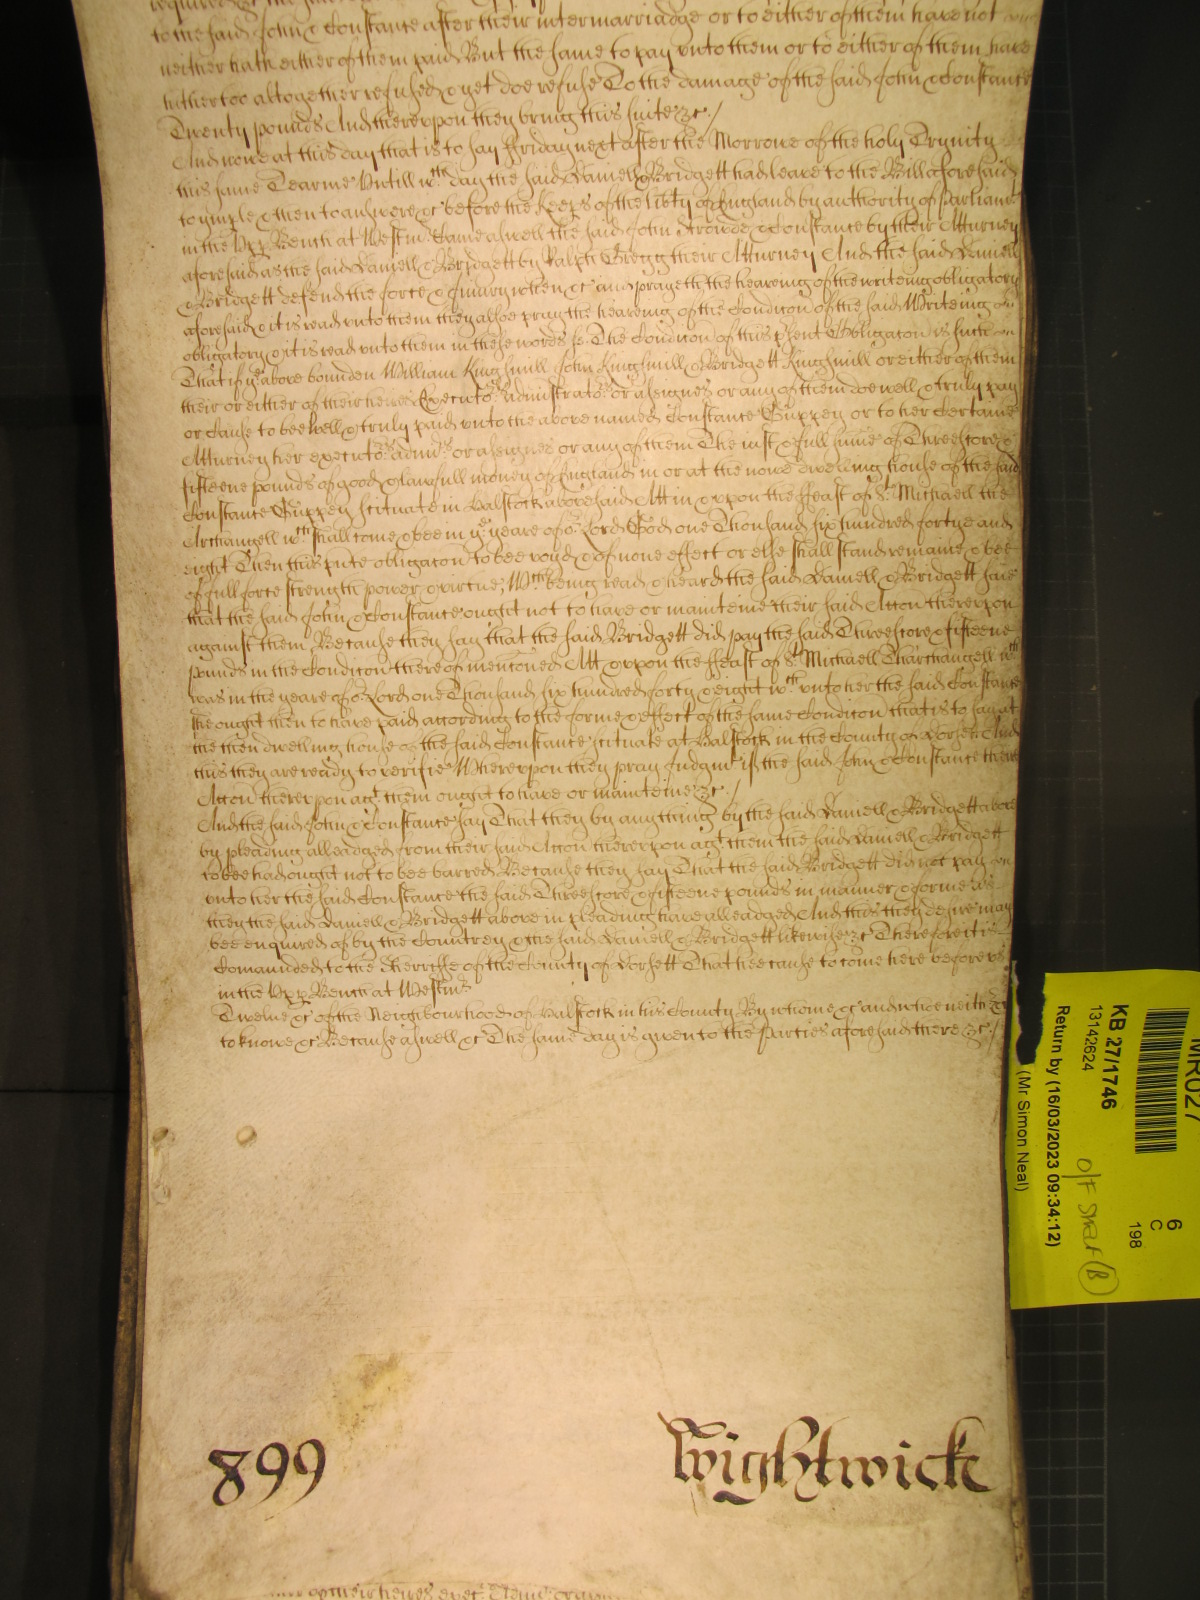 to the said John & Constance after their intermarriadge or to either of them have not
neither hath either of them paid But the same to pay unto them or to either of them have
hithertoo altogether refused & yet doe refuse To the damage of the said John & Constance
Twenty pounds And thereupon they bring this suite &c /
And nowe at this day that is to say Ffriday next after the Morrowe of the holy Trynity
this same Tearme Untill wch day the said Daniell & Bridgett had leave to the Bill aforesaid
to imple & then to answere &c before the Keeps of the libty of England by authority of Parliamt
in the Upp Bench at Westmr Came aswell the said John & Constance by their Atturney
aforesaid as the said Daniell & Bridgett by Ralph Gregg their Atturney And the said Daniell
& Bridgett defend the force & iniury when &c and prayeth the heareing of the writeing obligatory
aforesaid & it is read unto them they alsoe pray the heareing of the Condicon of the said Writeing
obligatory & it is read unto them in these words ss. The Condicon of this psent Obligacon is such
That if ye above bounden William Kingsmill John Kingsmill & Bridgett Kingsmill or either of them
their or either of their heires Executors administrators or assignes or any of them doe well & truly pay
or cause to bee well & truly paid unto the above named Constance Guppey or to her Certaine
Atturney her executors admrs or assignes or any of them The iust & full sume of Threescore &
fifteene pounds of good & lawfull money of England in or at the nowe dwelling house of the said
Constance Guppey scituate in Halstock abovesaid Att in & upon the ffeast of St Michaell the
Archangell wch shall come & bee in ye yeare of or Lord God one Thousand six hundred fortye and
eight Then this psnte obligacon to bee voyd & of none effect or else shall stand remaine & bee
of full force strength power & virtue, Wch being read & heard the said Daniell & Bridgett saie
that the said John & Constance ought not to have or mainteine their said Accon thereupon
against them Because they say that the said Bridgett did pay the said Threescore & fifteene
pounds in the Condicon thereof menconed Att & upon the ffeast of St Michaell Tharchangell wch
was in the yeare of or Lord one Thousand six hundred forty & eight wch unto her the said Constance
she ought then to have paid according to the forme & effect of the same Condicon that is to say at
the then dwelling house of the said Constance scituate at Halstock in the County of Dorsett And
this they are ready to verifie Whereupon they pray Judgmt if the said John & Constance their
Accon thereupon agt them ought to have or mainteine &c /
And the said John & Constance say That they by any thing by the said Daniell & Bridgett above
by pleading alleadged from their said Accon thereupon agt them the said Daniell & Bridgett
to bee had ought not to bee barred Because they say That the said Bridgett did not pay
unto her the said Constance the said Threescore & fifteene pounds in manner & forme as
they the said Daniell & Bridgett above in pleading have alleadged And this they desire may
bee enquired of by the Countrey & the said Daniell & Bridgett likewise &c Therefore it is
Comaunded to the Sherriffe of the County of Dorsett That hee cause to come here before
in the Upp Bench at Westmr
Twelve &c of the Neighbourhood of Halstock in his County By whome &c and whoe neither &c
to knowe &c Because aswell &c The same day is given to the Parties aforesaid there &c /
899
Wightwick
MR027
6
C
198
KB 27/1746
13142624
O/F Smart (B)
Return by (16/03/2023 09:34:12)
(Mr Simon Neal)